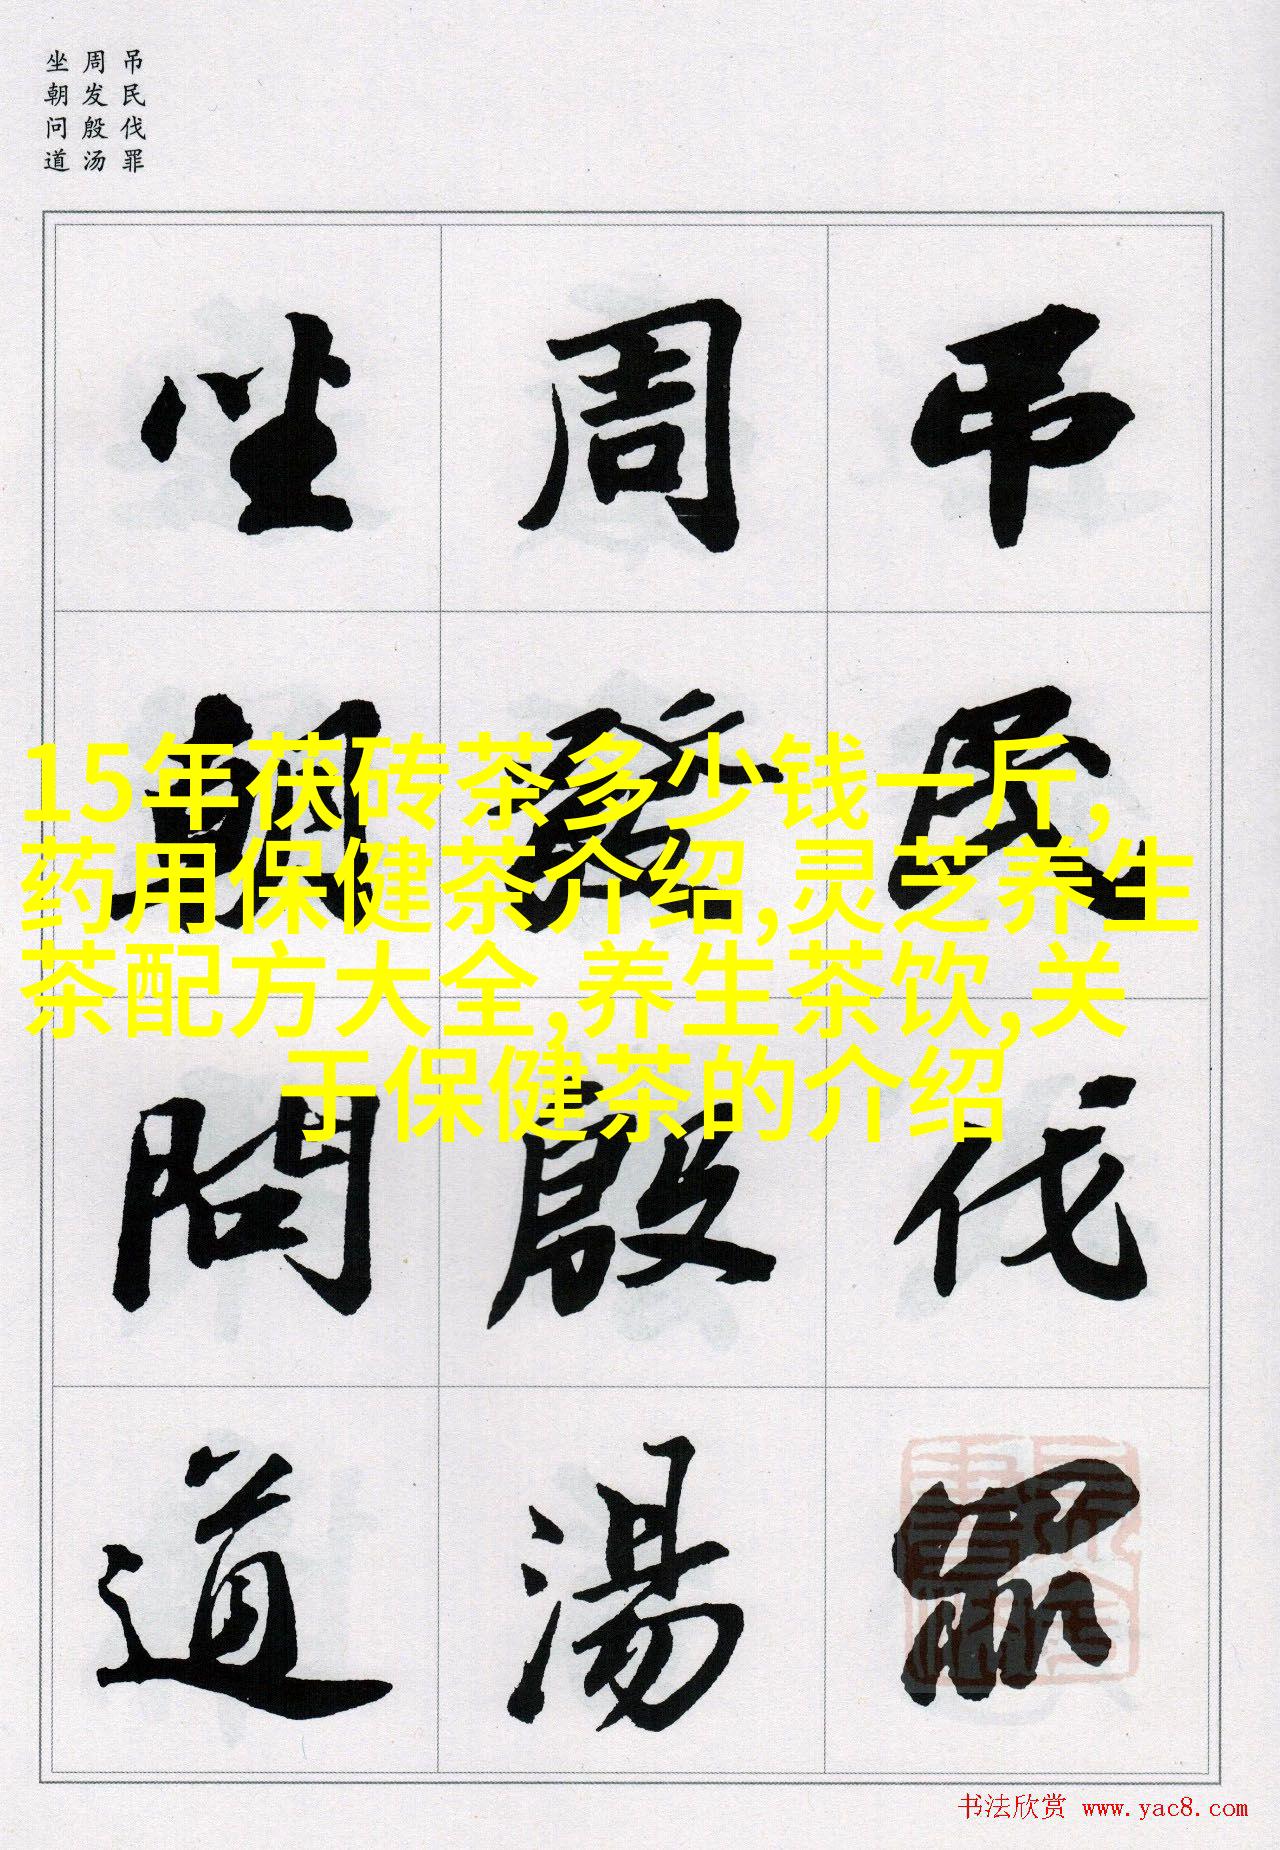 吊民伐罪
周发殷汤
坐朝问道
吊民伐罪
周發殷湯
坐朝問道
15年茯砖茶多少钱一斤,
药用保健茶介绍,灵芝养生
茶配方大全,养生茶饮,关
于保健茶的介绍
书法欣赏 www.yac8.com